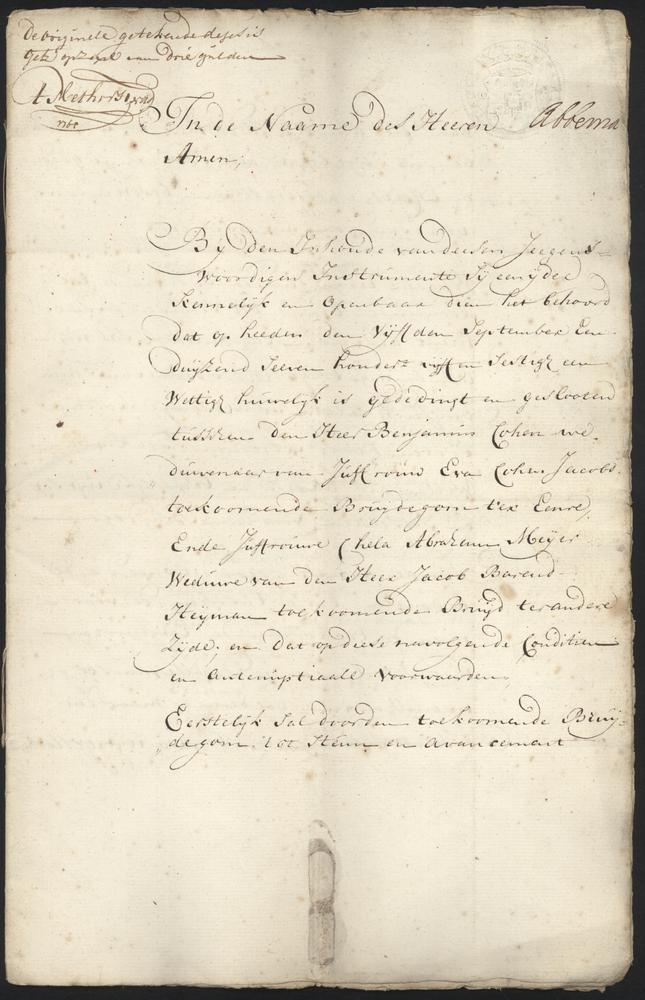 De originele getekende deses is
Gesch: op zegel van drie gulden
A Methorst
1765
In de Naame des Heeren Abbema
Amen;
By den Inhoude van deesen Jeegens=
woordigen Instrumente Sy een ydee
kennelyk en Openbaar dien het behoord
dat op heeden den Vyfden September Een
duyzend Seeven hondert vyff en Sestigh een
Wettigh huwelyk is gededingt en geslooten
tusschen den Heer Benjamin Cohen we
duwenaar van Juffrouw Eva Cohen Jacobs
toekoomende Bruydegom ter Eenre,
Ende Juffrouwe Chela Abraham Meyer
Weduwe van den Heer Jacob Barend
Heyman toekoomende Bruyd ter andere
Zyde; en dat op diese navolgende Conditien
en antenuptiaale voorwaarden,
Eerstelyk Sal door den toekoomende Bruy=
degom tot Steun en avancement